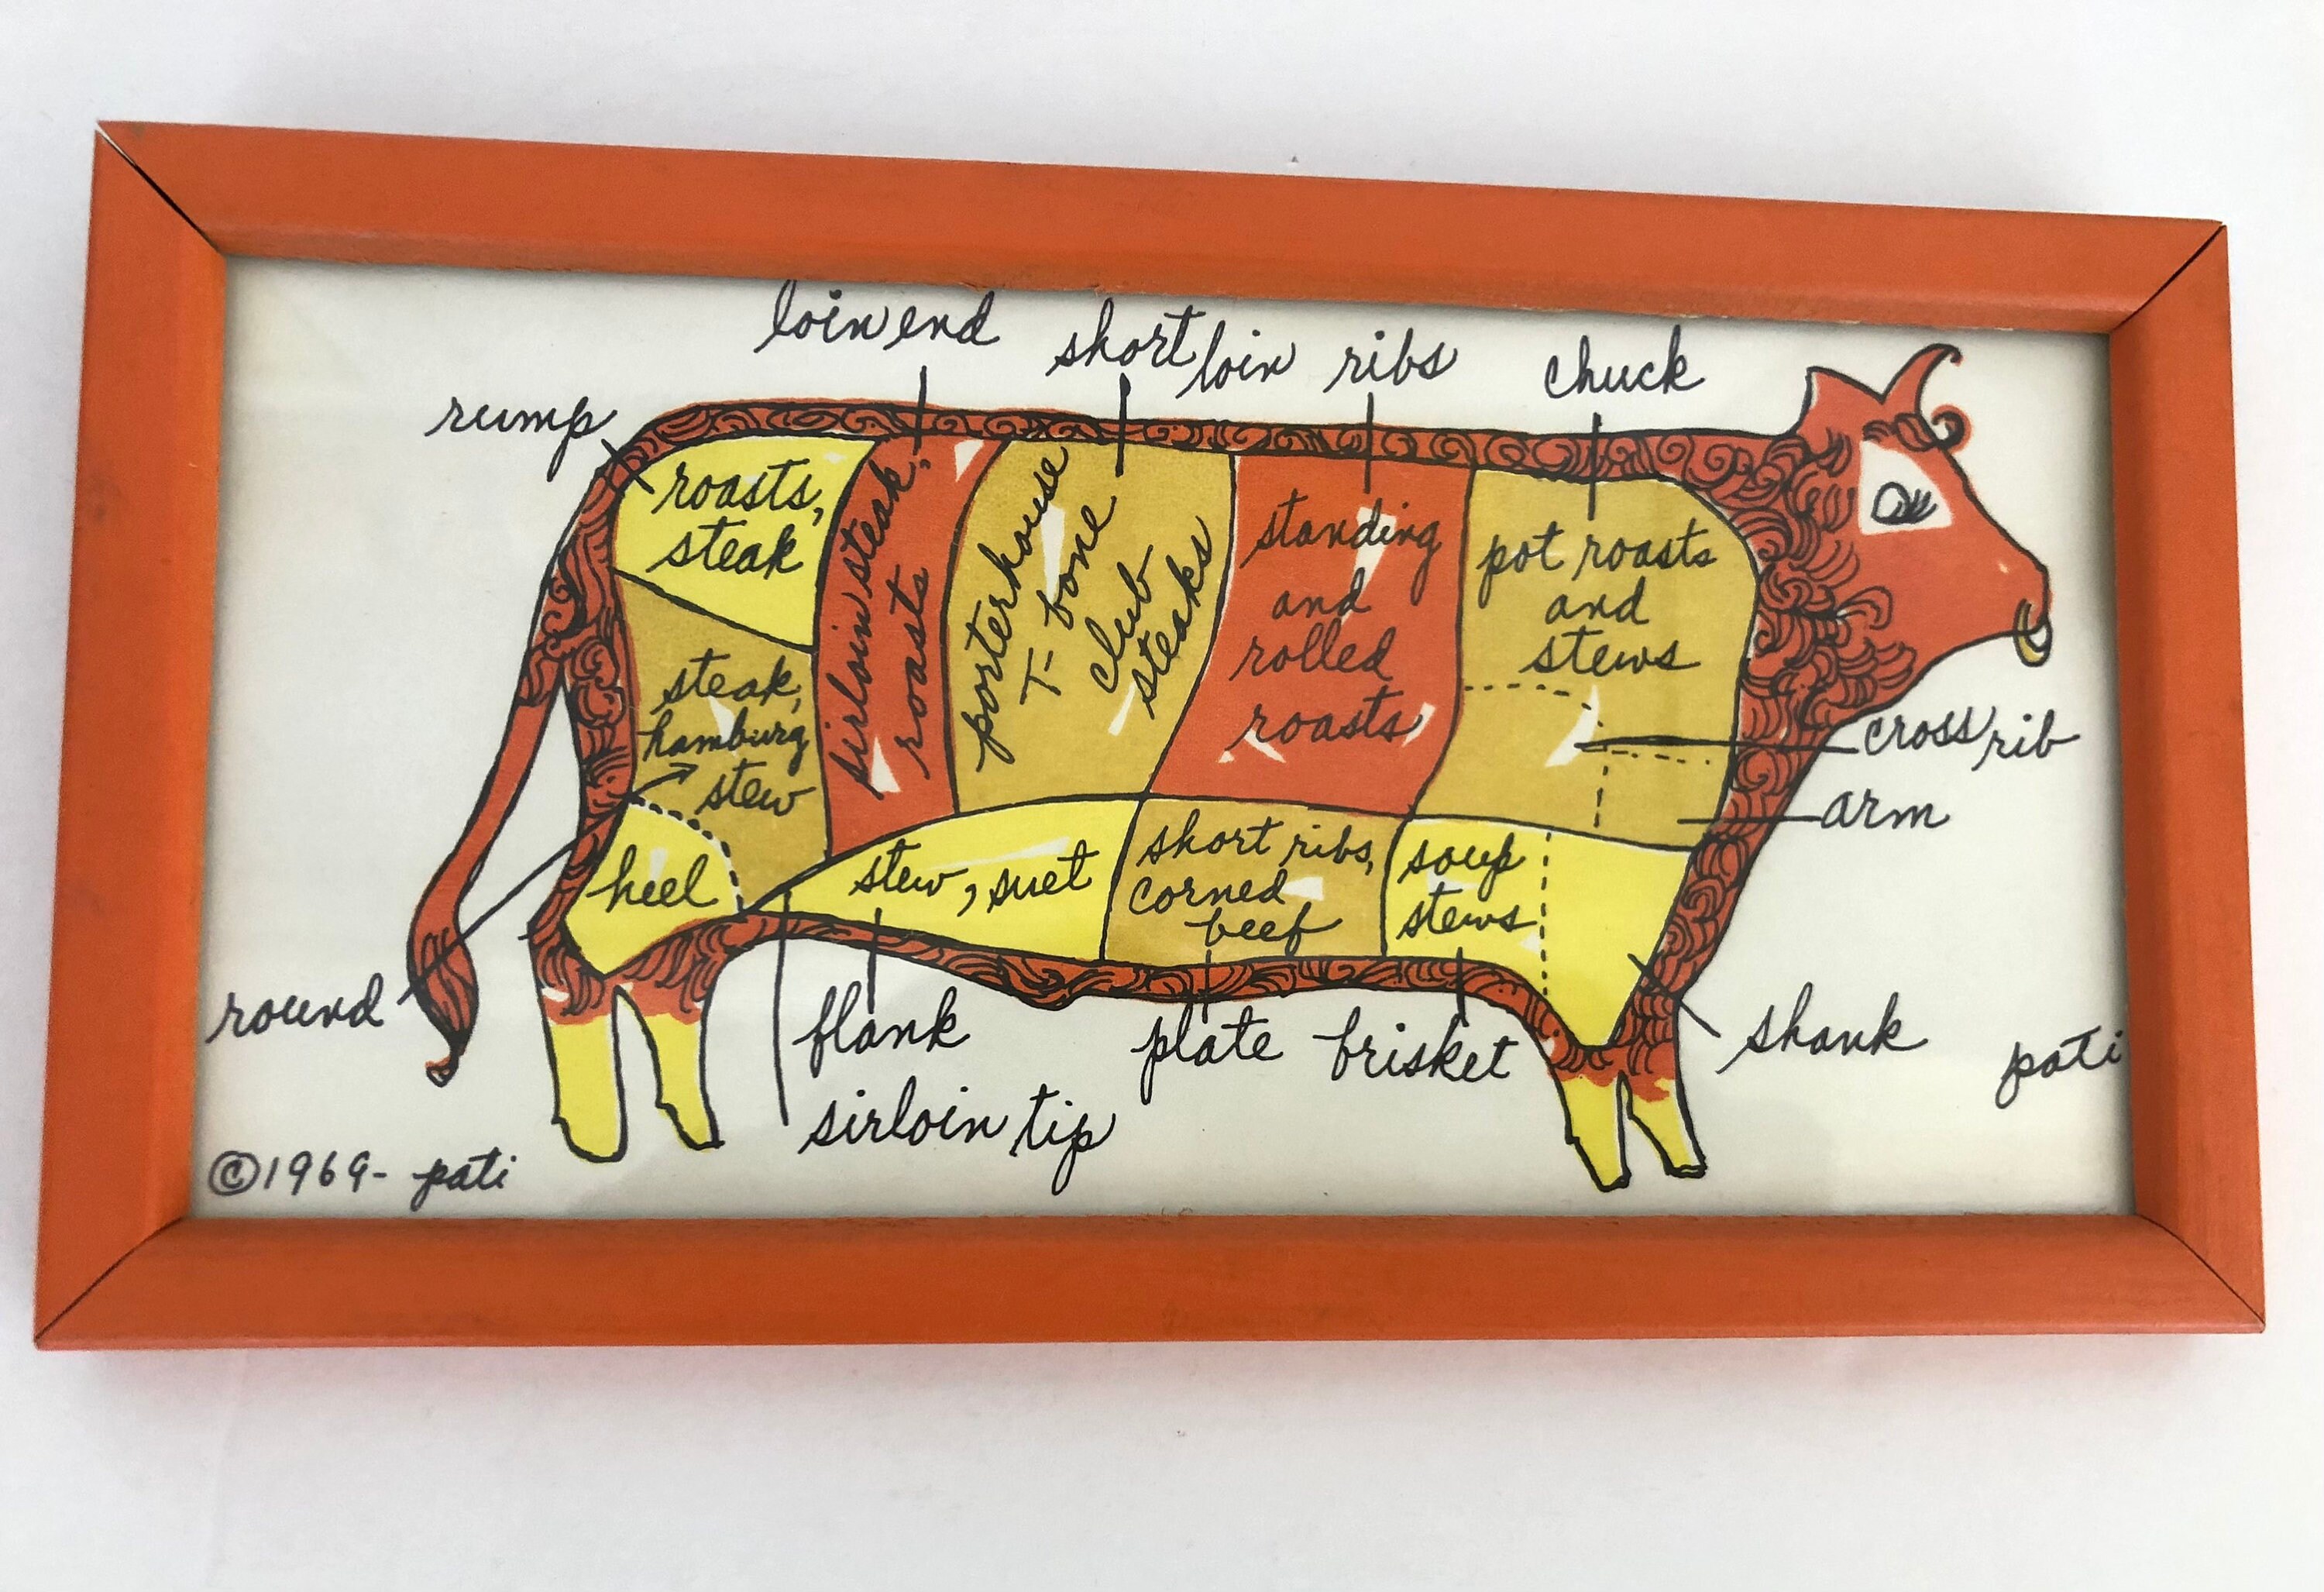 loin end
short loin
ribs
chuck
rump
roasts,
steak
sirloin steak,
roasts
porterhouse
T-bone
club
steaks
standing
and
rolled
roasts
pot roasts
and
stews
steak,
hamburg
stew
cross rib
arm
heel
stew, suet
short ribs,
corned
beef
soup
stews
round
flank
plate
brisket
shank
sirloin tip
pati
©1969- pati